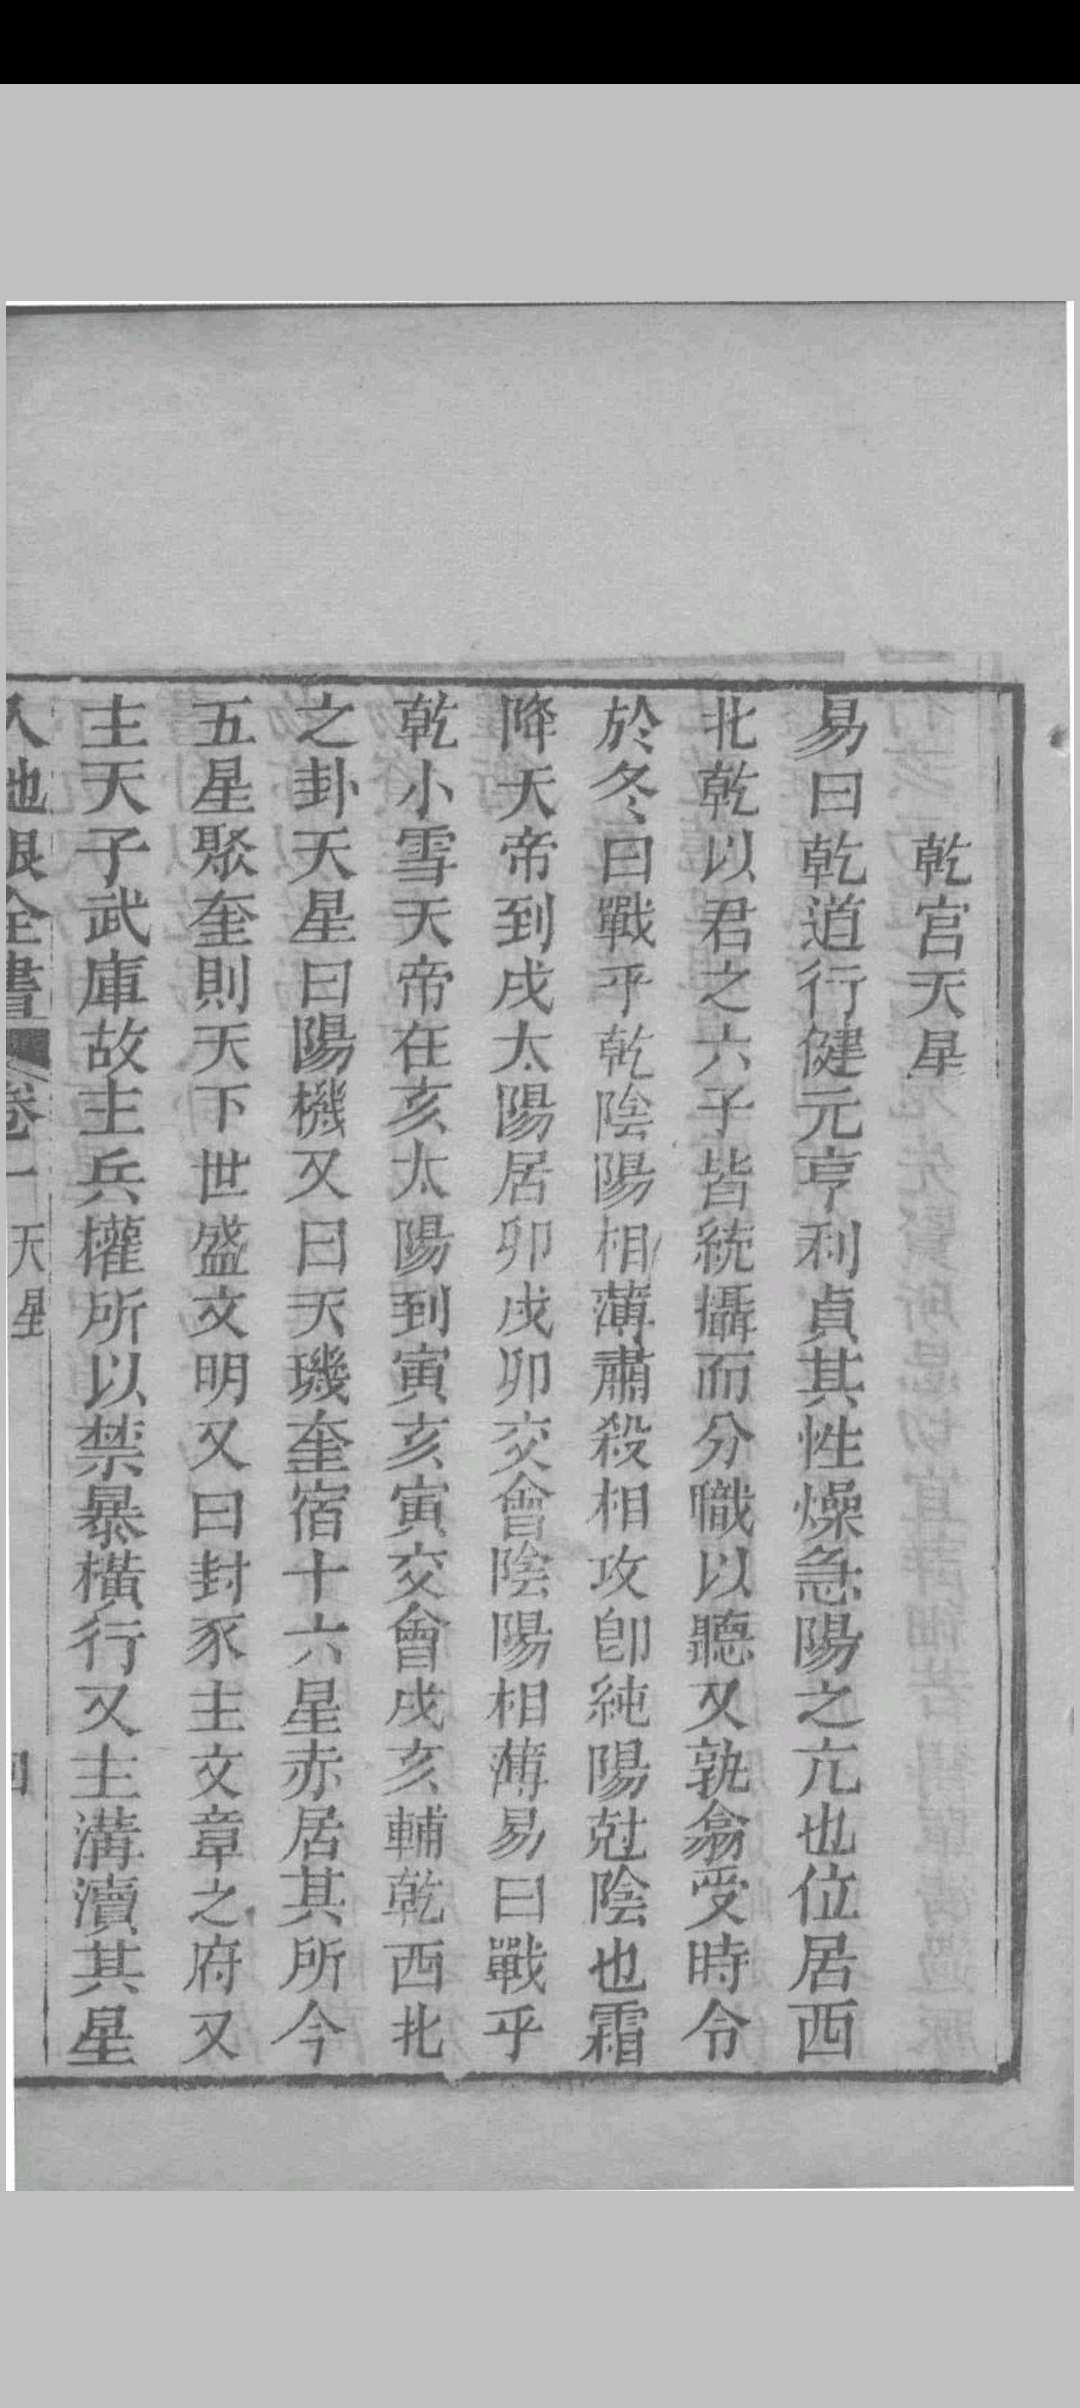 乾宮天星
易曰乾道行健元亨利貞其性燥急陽之亢也位居西
北乾以君之六子皆統攝而分職以聽又孰翕受時令
於冬曰戰乎乾陰陽相薄肅殺相攻卽純陽尅陰也霜
降天帝到戌太陽居卯戌卯交會陰陽相薄易曰戰乎
乾小雪天帝在亥太陽到寅亥寅交會戌亥輔乾西北
之卦天星曰陽機又曰天璣奎宿十六星赤居其所今
五星聚奎則天下世盛文明又曰封豕主文章之府又
主天子武庫故主兵權所以禁暴橫行又主溝瀆其星
人地眼全書 卷一 天星 四